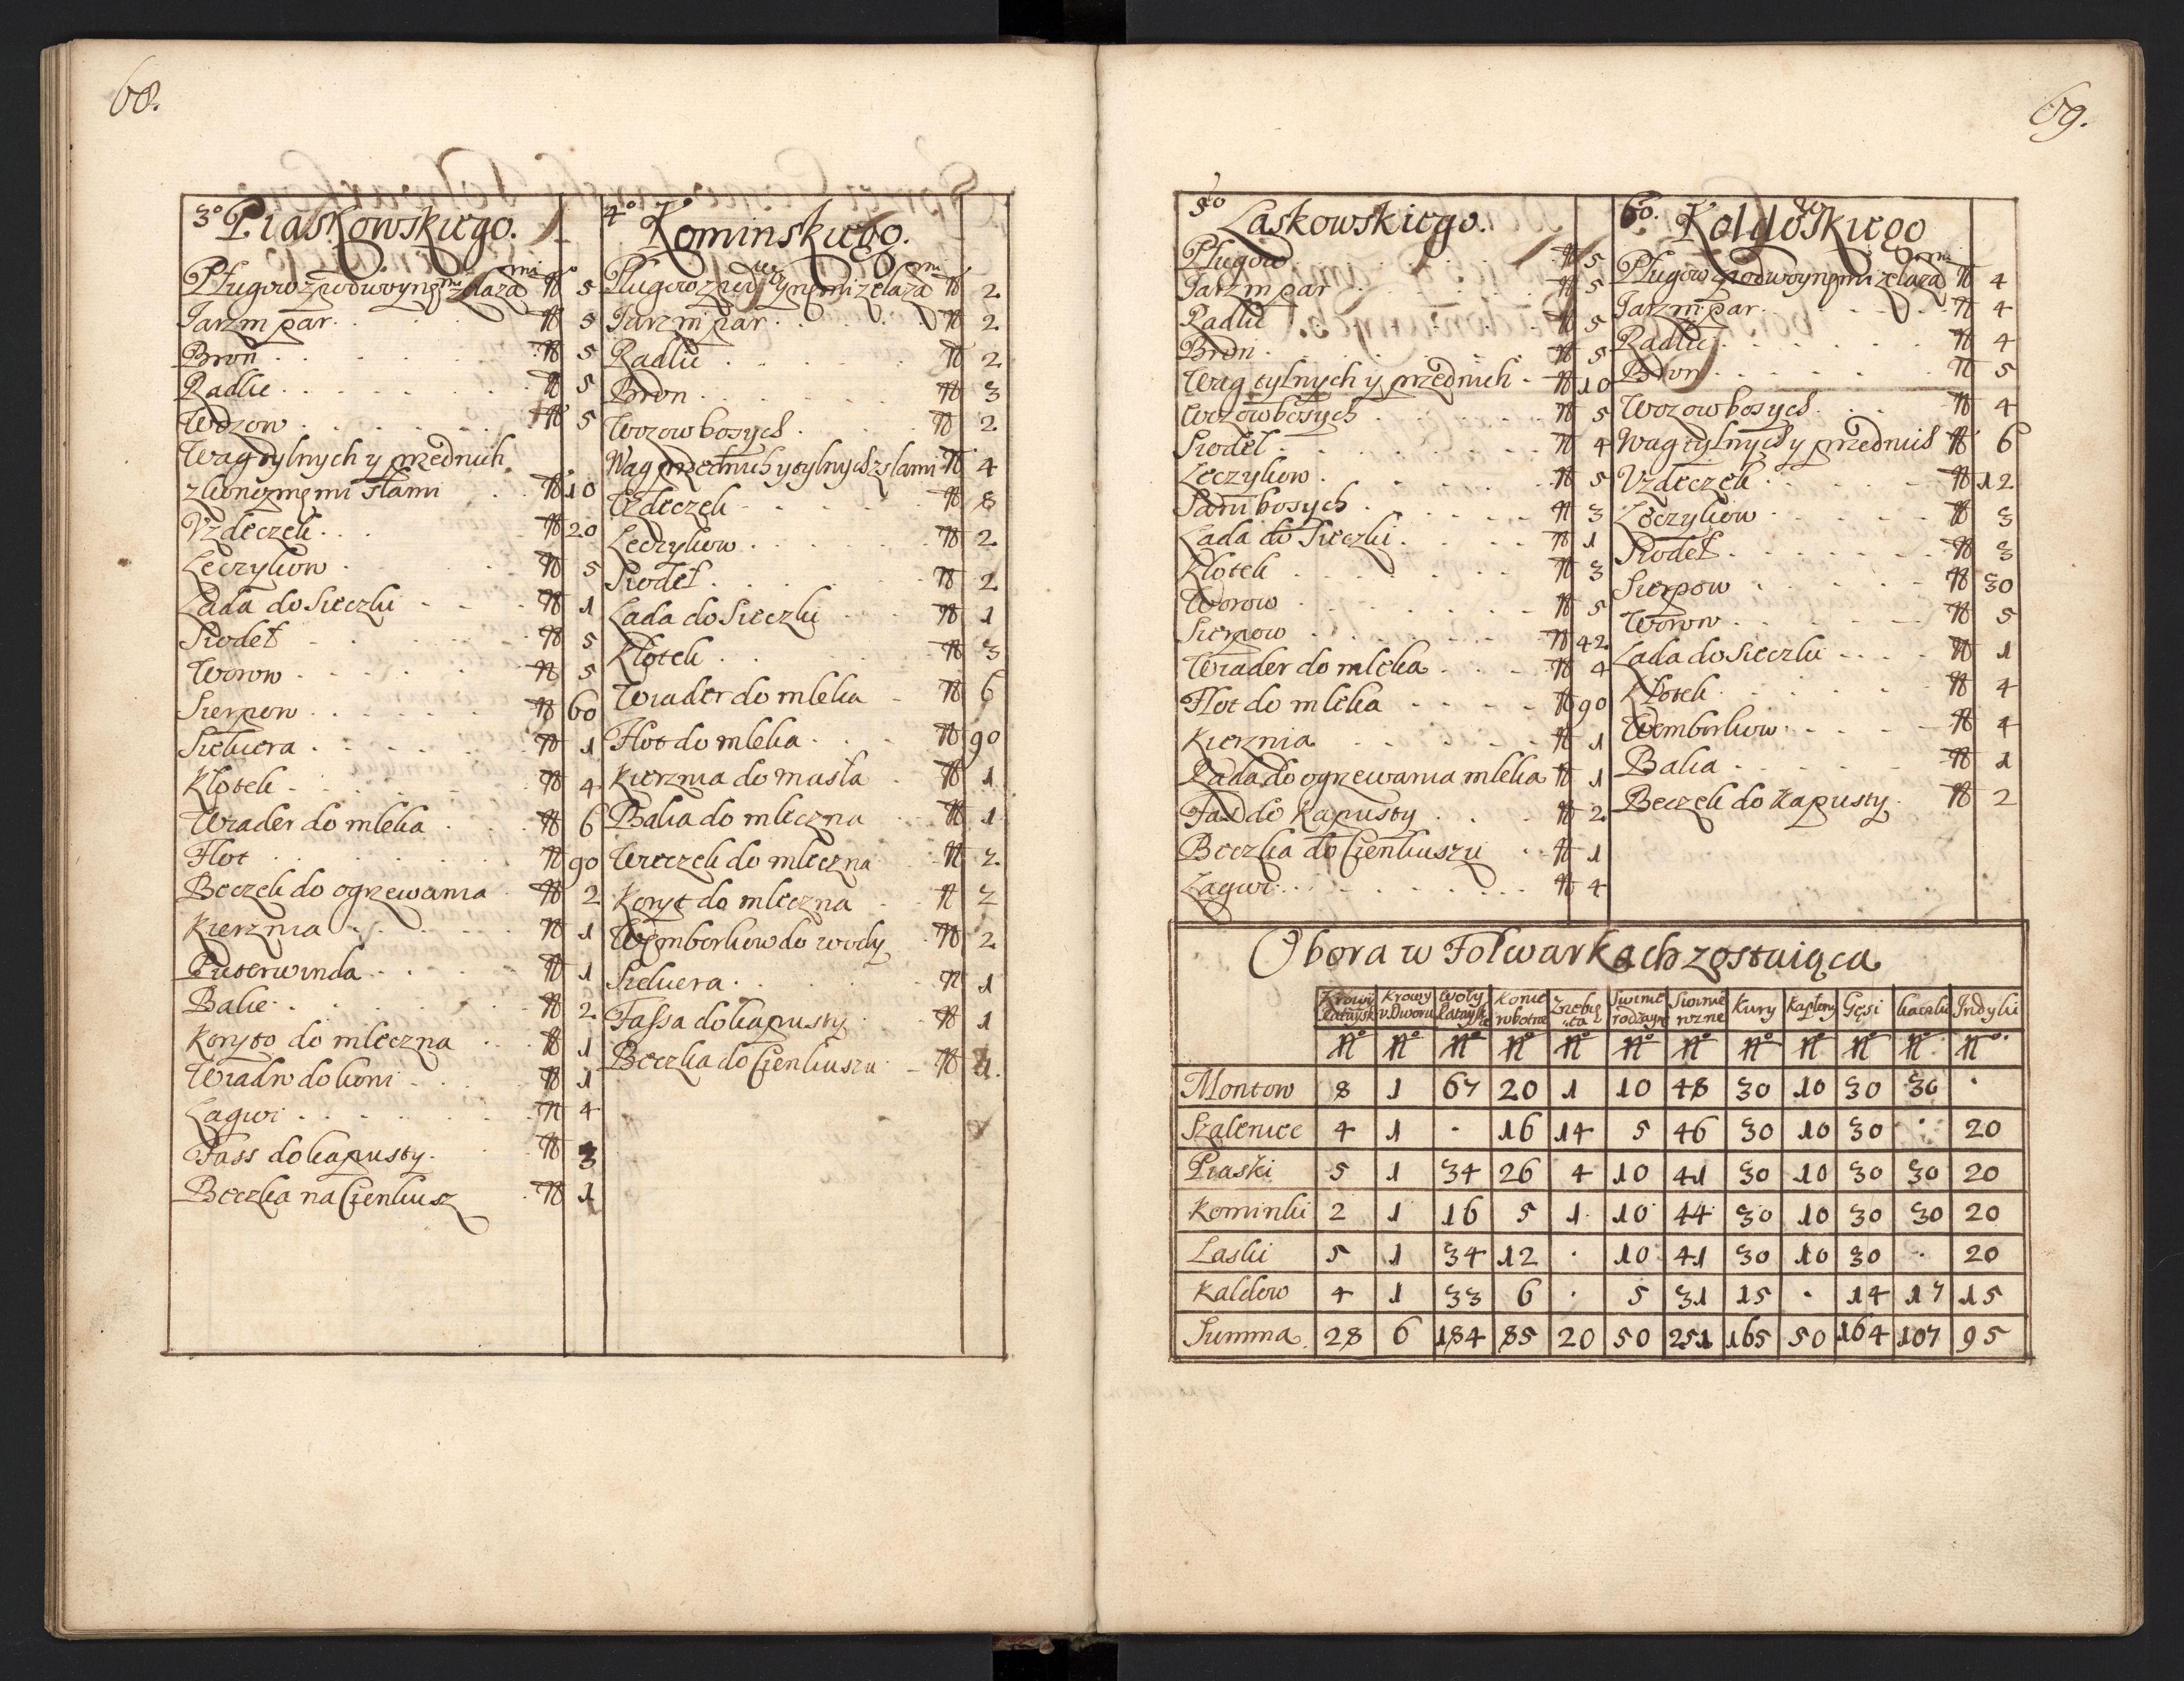 68.
3º Piaskowskiego.
Pługow z podwoynęmi żelaza mi Nº 5
Jarzm par. Nº 5
Bron Nº 5
Radlic Nº 5
Wozow Nº 5
Wag tylnych y przednich
z koncznęmi słami Nº 10
Vzdeczek Nº 20
Leczykow Nº 5
Lada do Sieczki Nº 1
Siodeł Nº 5
Worow Nº 5
Sierpow Nº 60
Siekiera Nº 1
Kłotek Nº 4
Wiader do mleka Nº 6
Flot Nº 90
Beczek do ogrzewania Nº 2
Kierznia Nº 1
Puterwinda Nº 1
Balie Nº 2
Koryto do mleczna Nº 1
Wiadro do koni Nº 1
Lagwi Nº 4
Fass do kapusty Nº 3
Beczka na Cienkusz Nº 1
4º Kominskiego.
Pługow z podwoynęmi żelaza mi Nº 2
Jarzm par Nº 2
Radlic Nº 2
Bron Nº 3
Wozow bosych Nº 2
Wag przednich y tylnych z slami Nº 4
Uzdeczek Nº 8
Leczykow Nº 2
Siodeł Nº 2
Lada do Sieczki Nº 1
Kłotek Nº 3
Wiader do mleka Nº 6
Flot do mleka Nº 90
Kierznia do masła Nº 1
Balia do mleczna Nº 1
Wieczek do mleczna Nº 2
Koryt do mleczna Nº 2
Węmborkow do wody Nº 2
Siekiera Nº 1
Fassa do kapusty Nº 1
Beczka do Cienkuszu Nº 1.
69.
5to Laskowskiego.
Pługow Nº 5
Jarzm par Nº 5
Radlic Nº 5
Bron Nº 5
Wag tylnych y przednich Nº 10
Wozow bosych Nº 5
Siodeł Nº 4
Leczykow Nº 5
Sani bosych Nº 3
Lada do Sieczki Nº 1
Kłotek Nº 3
Worow Nº 5
Sierpow Nº 42
Wiader do mleka Nº 4
Flot do mleka Nº 90
Kierznia Nº 1
Kada do ogrzewania mleka Nº 1
Fas do Kapusty Nº 2
Beczka do Cienkuszu Nº 1
Lagwi Nº 4
6to. Koldowskiego
Pługow z podwoynęmi żelaza mi Nº 4
Jarzm par Nº 4
Radlic Nº 4
Bron Nº 5
Wozow bosych Nº 4
Wag tylnych y przednich Nº 6
Vzdeczek Nº 12
Leczykow Nº 3
Siodeł Nº 3
Sierpow Nº 30
Worow Nº 5
Lada do Sieczki Nº 1
Kłotek Nº 4
Wemborkow Nº 4
Balia Nº 1
Beczek do Kapusty Nº 2
Obora w Folwarkach zostaiąca
Krowy Latoysk Krowy v Dworu Woły Latoyskie Konie robotne Zrebięta Swinie rodzayne Swinie rozne Kury Kapłony Gęsi kaczki Indyki
Nº Nº Nº Nº Nº Nº Nº Nº Nº Nº Nº Nº.
Montow 8 1 67 20 1 10 48 30 10 30 30 ·
Szalenice 4 1 · 16 14 5 46 30 10 30 · 20
Piaski 5 1 34 26 4 10 41 30 10 30 30 20
Kominki 2 1 16 5 1 10 44 30 10 30 30 20
Laski 5 1 34 12 · 10 41 30 10 30 · 20
Kaldow 4 1 33 6 · 5 31 15 · 14 17 15
Summa 28 6 184 85 20 50 251 165 50 164 107 95